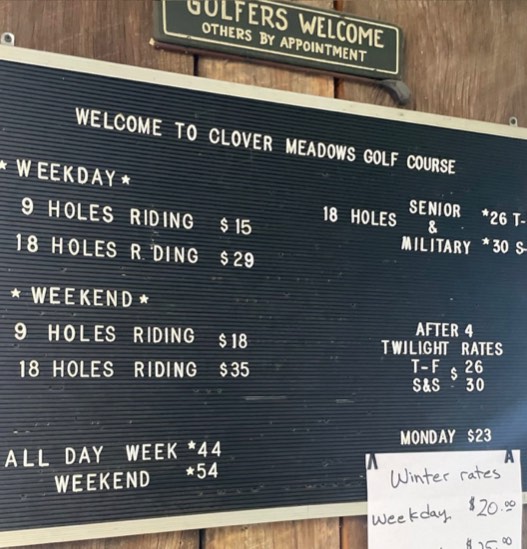 GOLFERS WELCOME
OTHERS BY APPOINTMENT
WELCOME TO CLOVER MEADOWS GOLF COURSE
* WEEKDAY *
9 HOLES RIDING $15
18 HOLES R DING $29
* WEEKEND *
9 HOLES RIDING $18
18 HOLES RIDING $35
ALL DAY WEEK *44
WEEKEND *54
18 HOLES SENIOR & MILITARY
*26 T-
*30 S-
AFTER 4
TWILIGHT RATES
T-F $ 26
S&S 30
MONDAY $23
Winter rates
Weekday $20.00